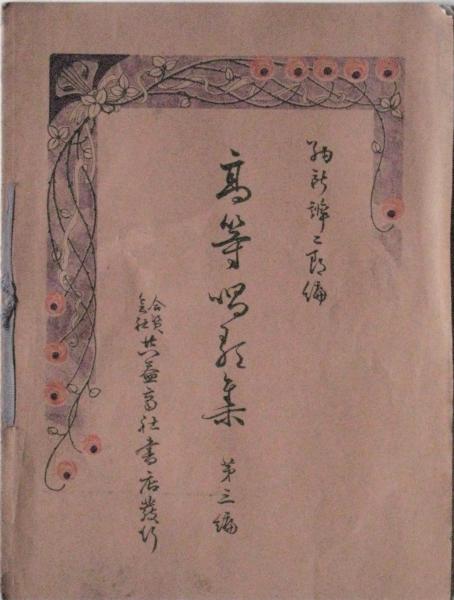 納所辨次郎編
高等唱歌集 第三編
合資會社共益商社書店發行